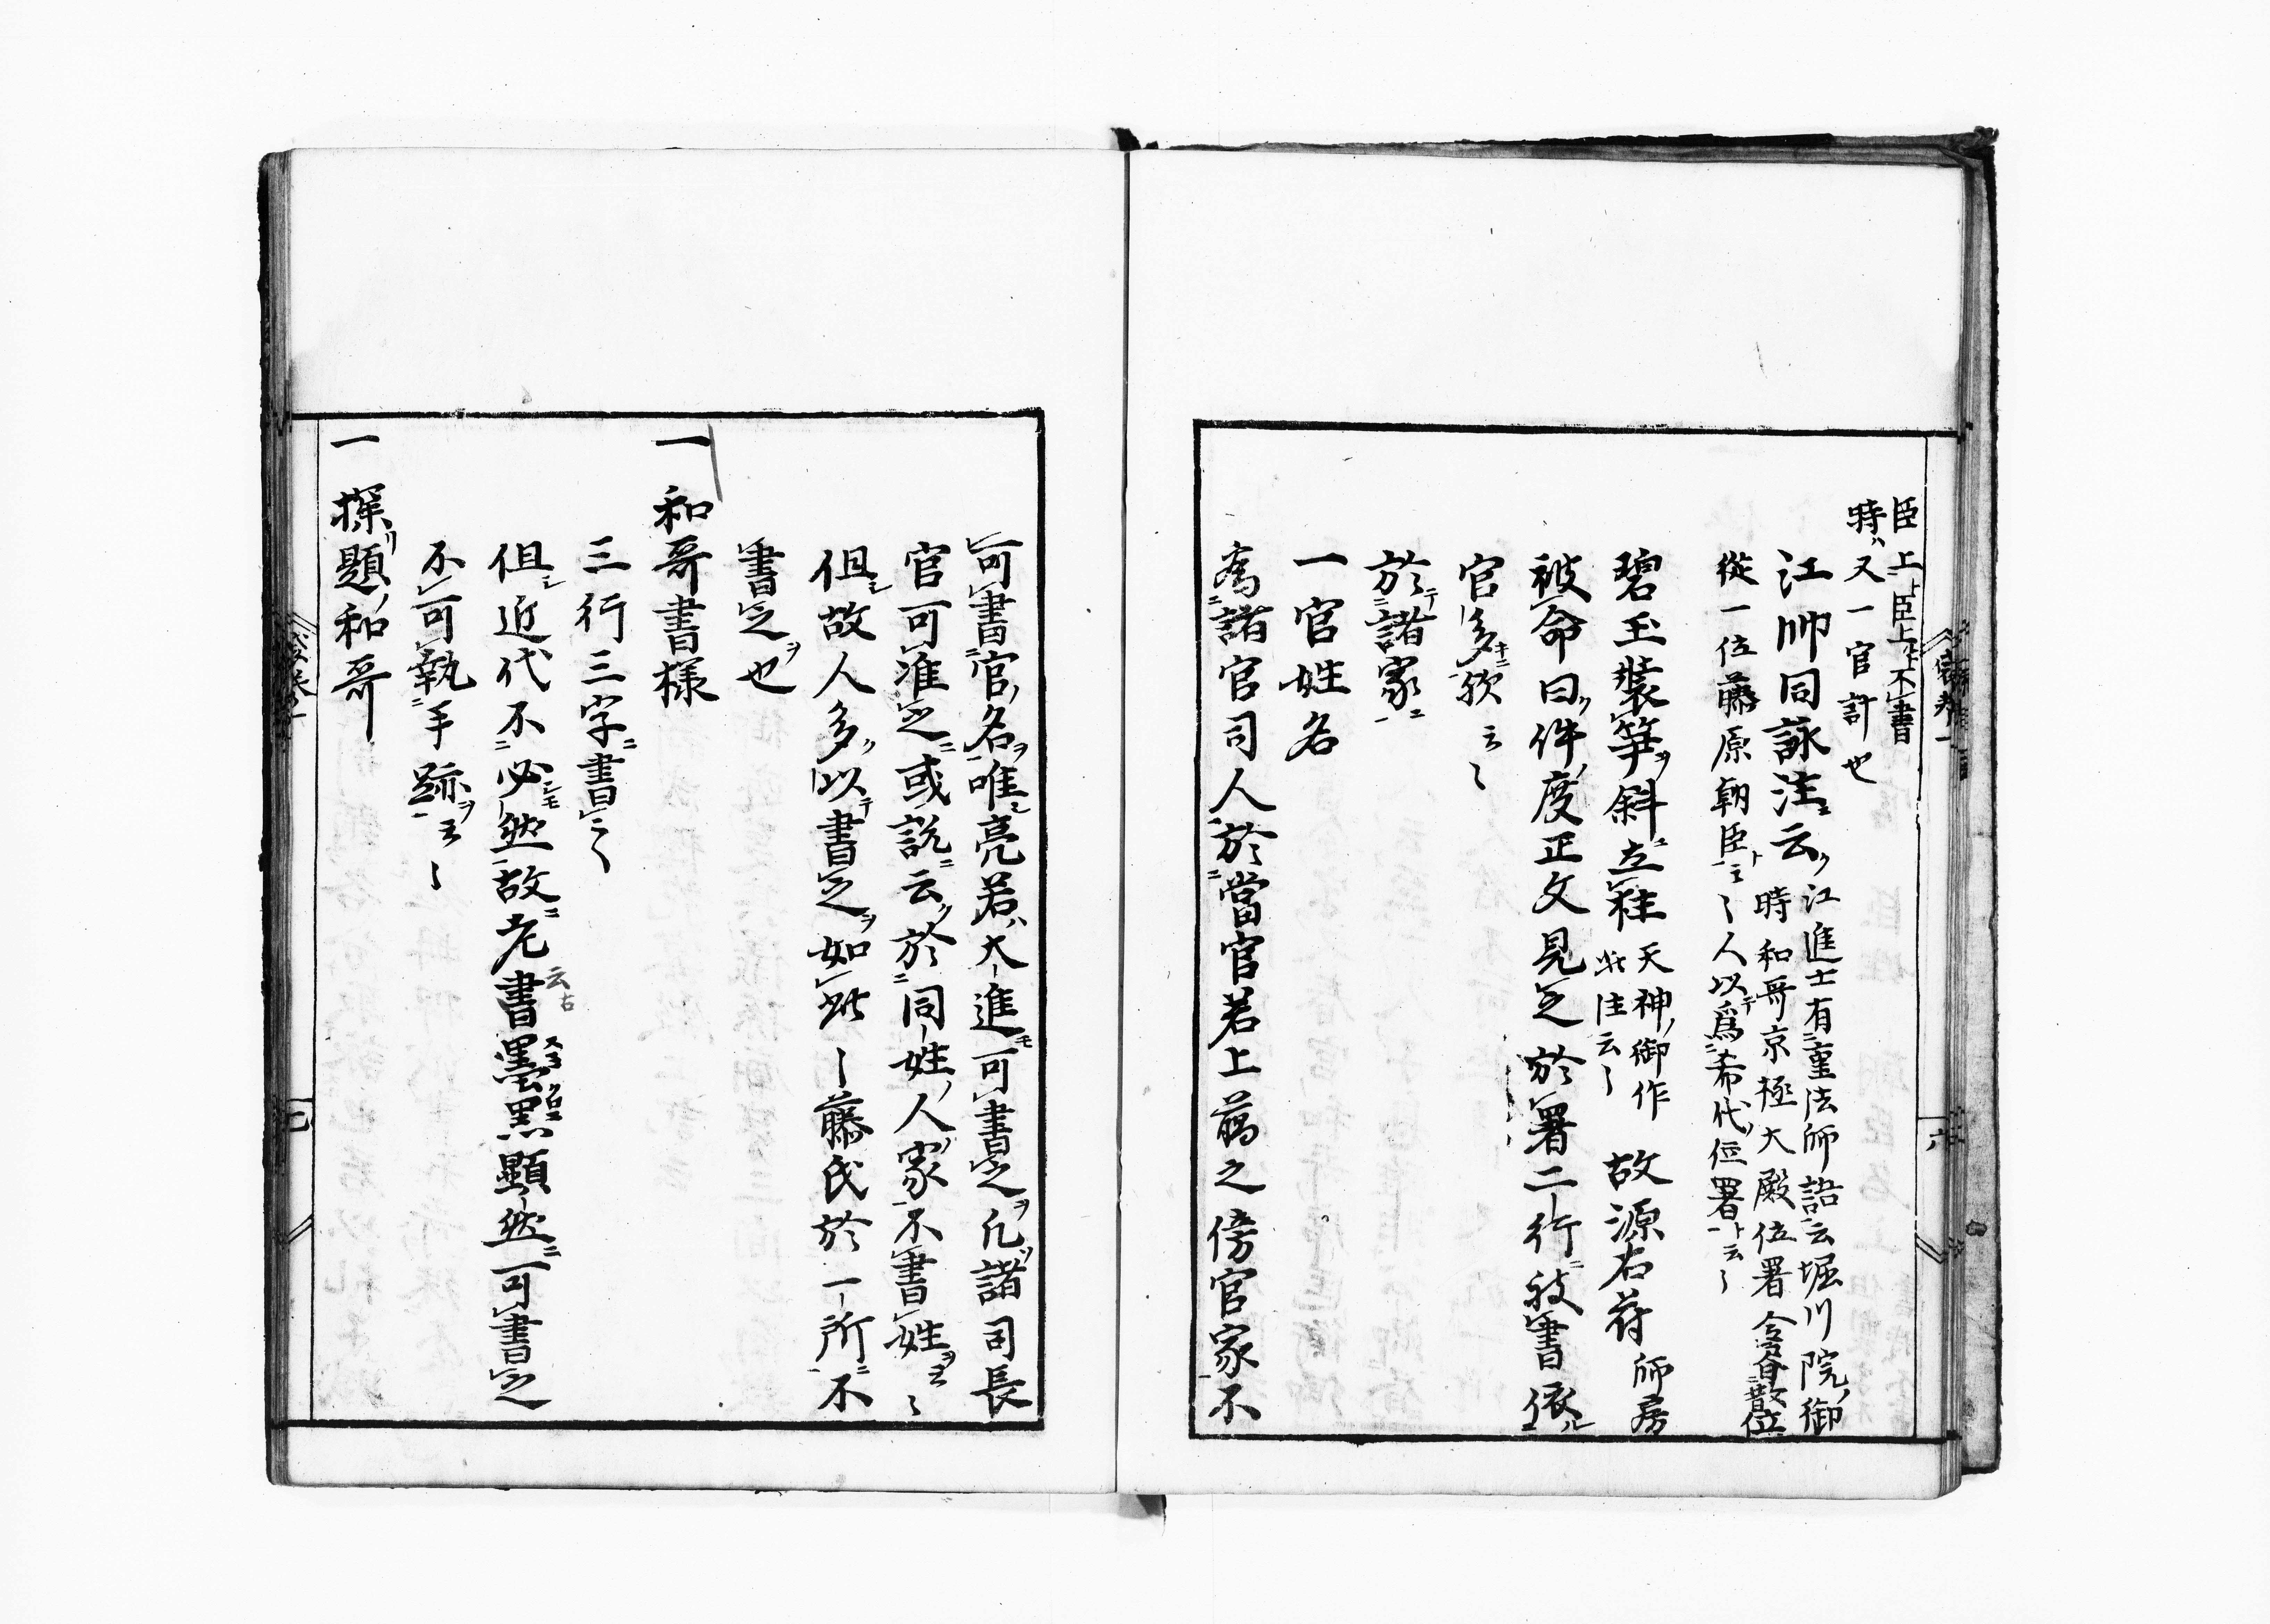 臣上臣上ト不書
時ハ又一官計也
江帥同詠注云江進士有重法師語云堀川院御
時和哥京極大殿位署令書散位
從一位藤原朝臣ト云〻人以爲希代位署ト云〻
碧玉装筝斜立柱天神御作
此注云〻故源右府師房
被命曰件度正文見之於署二行被書依
官多歟云〻
於諸家
一官姓名
爲諸官司人於當官若上﨟之傍官家不
可書官名唯亮若大進可書之凡諸司長
官可准之或説云於同姓人家不書姓云〻
但故人多以書之如此〻藤氏於一所不
書之也
一和哥書様
三行三字書云〻
但近代不必然故老云書墨黒顯然可書之
不可執手跡云〻
一探題和哥